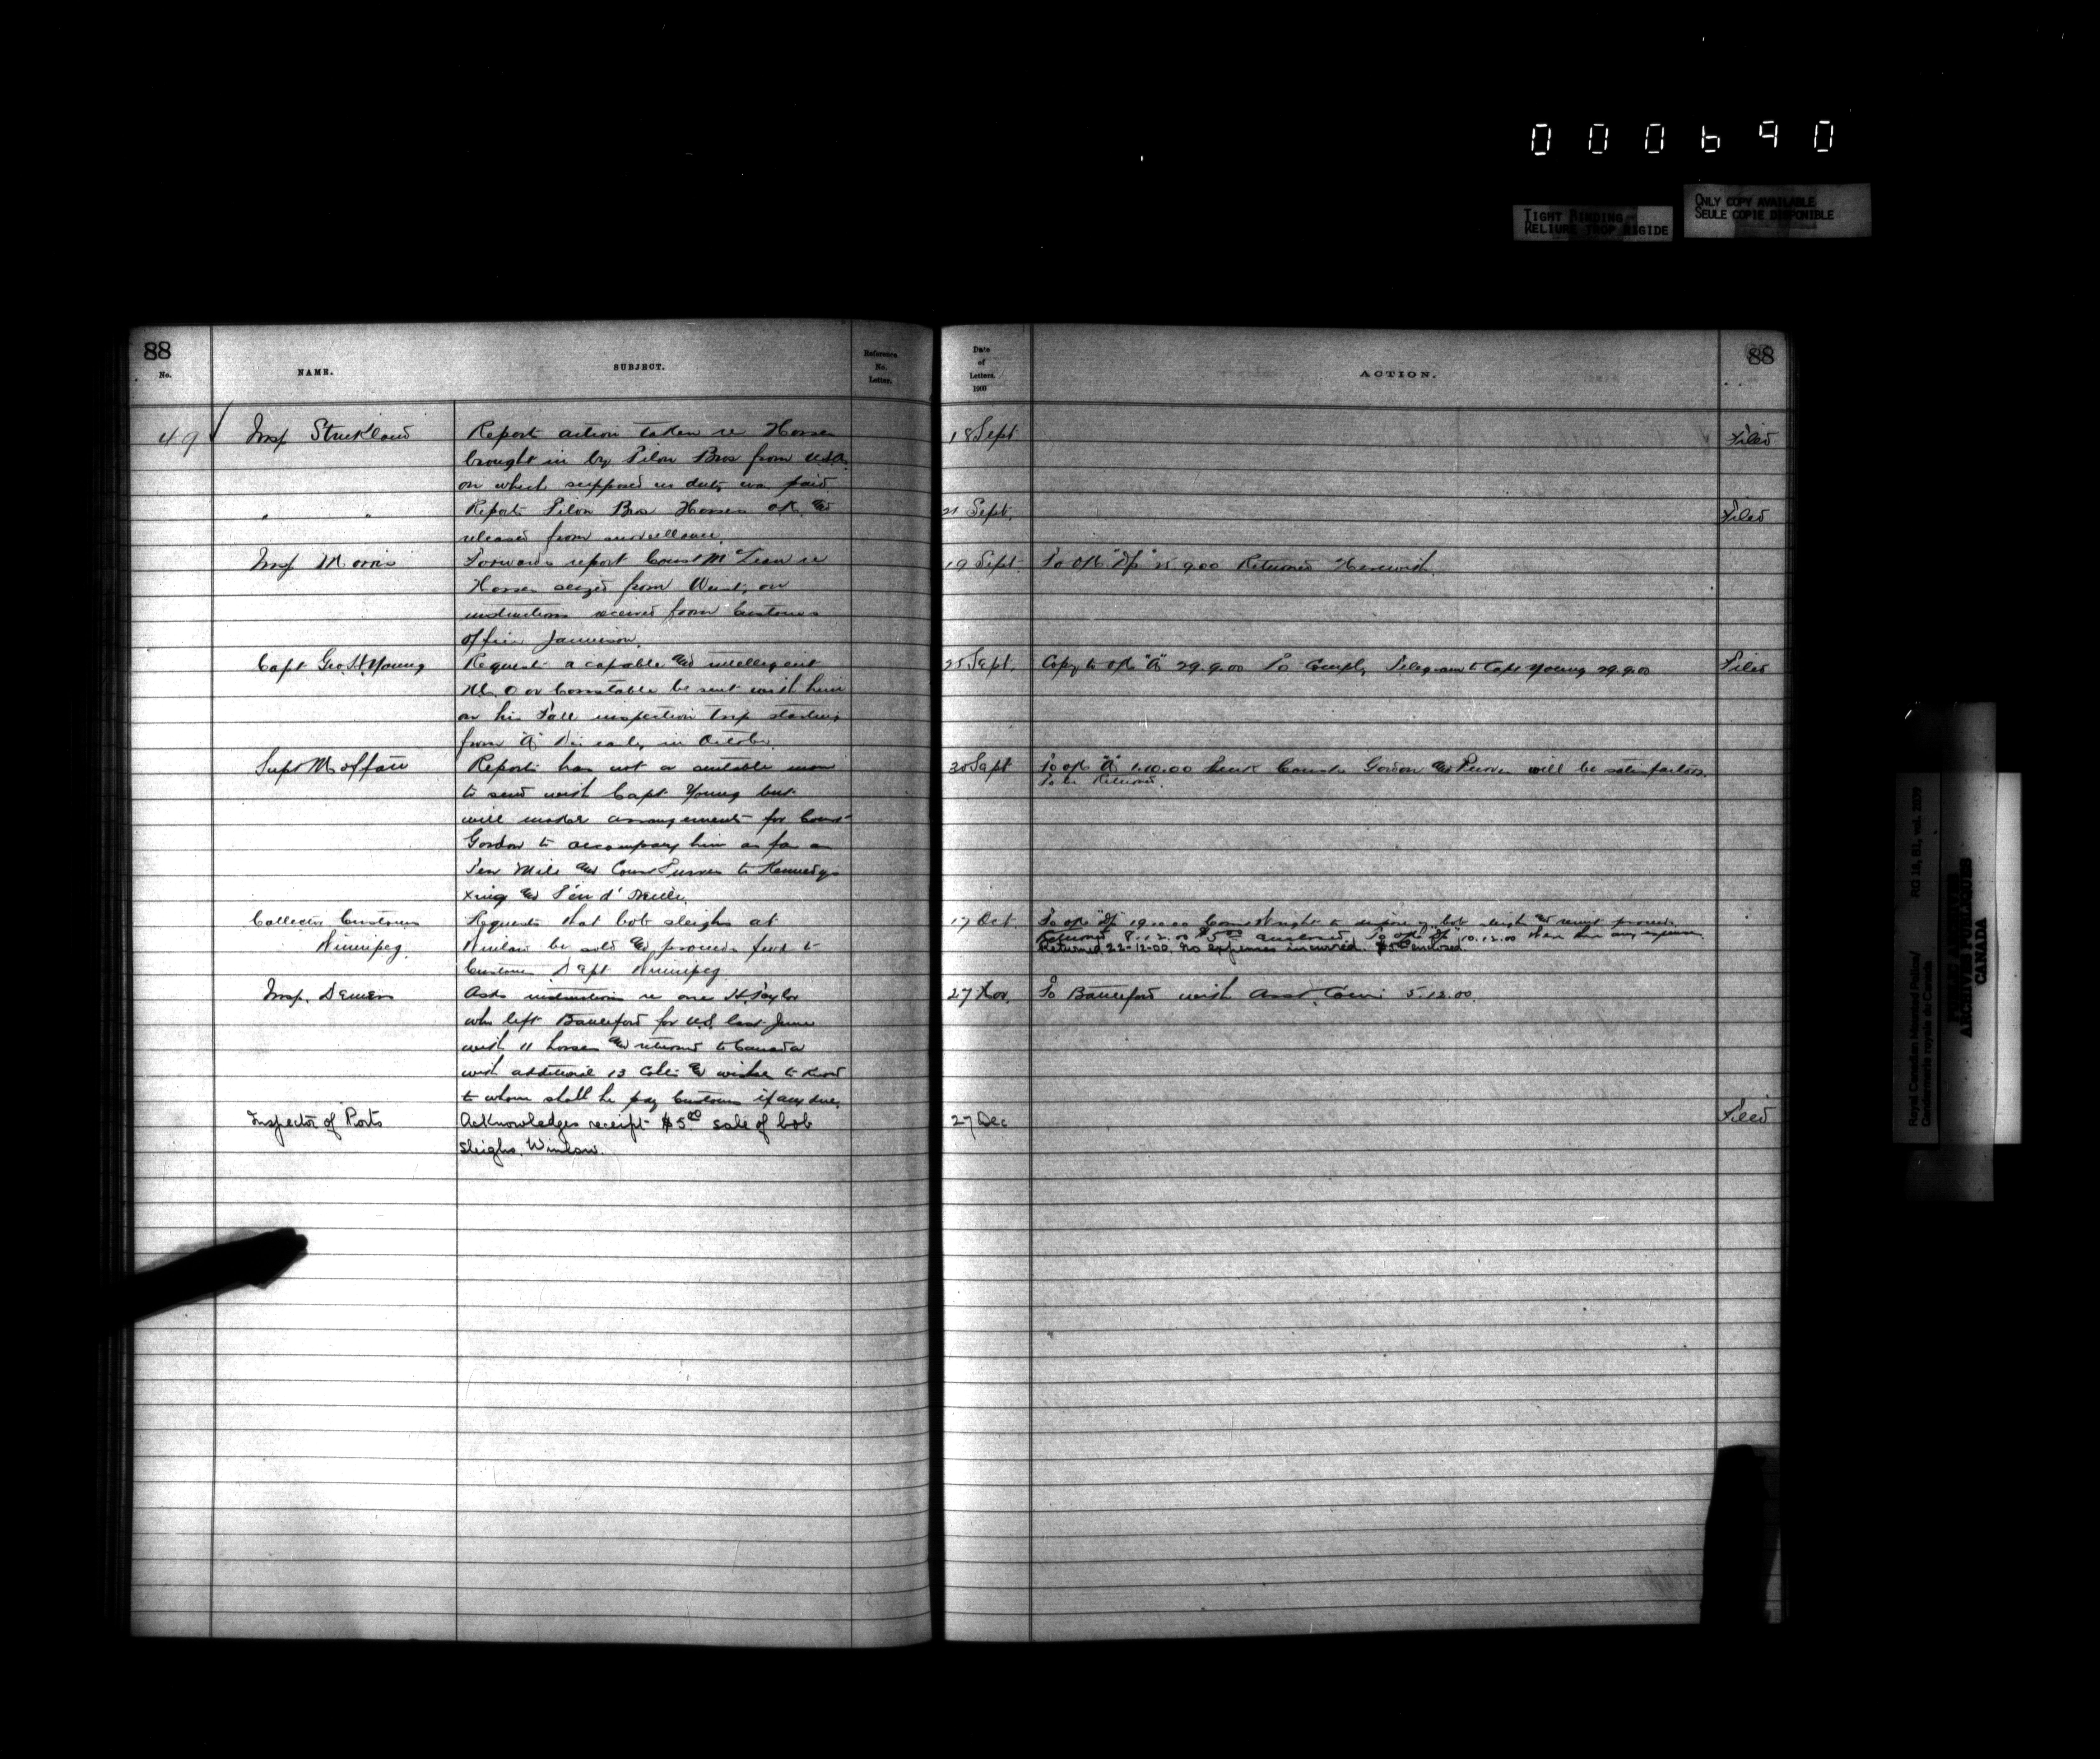 000690
TIGHT BINDING
RELIURE TROP RIGIDE
ONLY COPY AVAILABLE
SEULE COPIE DISPONIBLE
88
No.
NAME.
SUBJECT.
Reference No. Letter.
Date of Letters. 1900
ACTION.
88
49 Insp Strickland
Report action taken re Horses
brought in by Pilon Bros from U.S.A.
on which supposed no duty was paid
18 Sept
Filed
" "
Reports Pilon Bros Horses OK and
released from surveillance.
21 Sept.
Filed
Insp Morris
Forwards report Const McLean re
Horses seized from West, on
instructions received from Customs
officer Jamieson.
19 Sept.
To OC "Dp" 25.9.00 Returned Herewith.
Capt Geo. H. Young
Requests a capable and intelligent
N.C.O or Constable be sent with him
on his Fall inspection trip starting
from "A" Div early in October.
25 Sept.
Copy to OC "A" 29.9.00 To Comply, Telegram to Capt Young 29.9.00
Filed
Supt Moffatt
Reports has not a suitable man
to send with Capt Young but
will make arrangements for Const
Gordon to accompany him as far as
Ten Mile and Const to Kennedys
Xing and Pen d' Oreille.
30 Sept
To OC "A" 1.10.00 Consts Gordon and will be satisfactory.
To be Returned.
Collector Customs
Winnipeg.
Requests that bob sleighs at
Winlaw be sold and proceeds fwd to
Customs Dept Winnipeg.
17 Oct
To OC "Dp" 19.10.00 Const Wright to dispose of bob sleighs and remit proceeds
Returned 8.12.00 $5.00 enclosed. To OC "Dp" 10.12.00 Were there any expenses
Returned 22-12-00. No expenses incurred. $5.00 enclosed.
Insp. Demers
Asks instructions re one H. Taylor
who left Battleford for U.S. last June
with 11 horses and returned to Canada
with additional 13 Colts and wishes to know
to whom shall he pay Customs if any due.
27 Nov.
To Battleford with Asst. Com: 5.12.00.
Inspector of Ports
Acknowledges receipt $5.00 sale of bob
sleighs, Winlaw.
27 Dec
Filed
Royal Canadian Mounted Police/
Gendarmerie royale du Canada
RG 18, B1, vol. 2039
PUBLIC ARCHIVES
ARCHIVES PUBLIQUES
CANADA